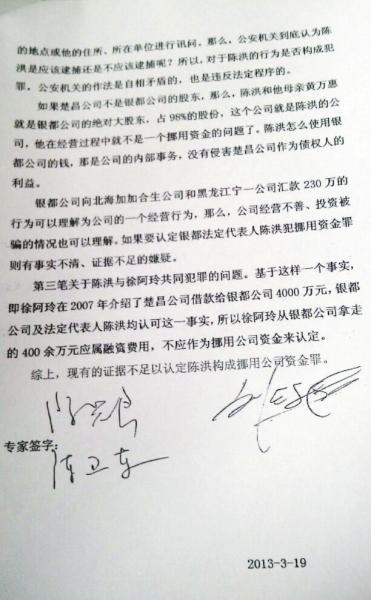 的地点或他的住所、所在单位进行讯问。那么，公安机关到底认为陈
洪是应该逮捕还是不应该逮捕呢？所以，对于陈洪的行为是否构成犯
罪，公安机关的作法是自相矛盾的，也是违反法定程序的。
如果楚昌公司不是银都公司的股东，那么，陈洪和他母亲黄万惠
就是银都公司的绝对大股东，占98%的股份，这个公司就是陈洪的公
司，他在经营过程中就不是一个挪用资金的问题了。陈洪怎么使用银
都公司的钱，那是公司的内部事务，没有侵害楚昌公司作为债权人的
利益。
银都公司向北海加加合生公司和黑龙江宁一公司汇款 230 万的
行为可以理解为公司的一个经营行为，那么，公司经营不善、投资被
骗的情况也可以理解。如果要认定银都法定代表人陈洪犯挪用资金罪
则有事实不清、证据不足的嫌疑。
第三笔关于陈洪与徐阿玲共同犯罪的问题。基于这样一个事实，
即徐阿玲在 2007 年介绍了楚昌公司借款给银都公司 4000 万元，银都
公司及法定代表人陈洪均认可这一事实，所以徐阿玲从银都公司拿走
的 400 余万元应属融资费用，不应作为挪用公司资金来认定。
综上，现有的证据不足以认定陈洪构成挪用公司资金罪。
陈兴良
专家签字：
陈卫东
2013-3-19